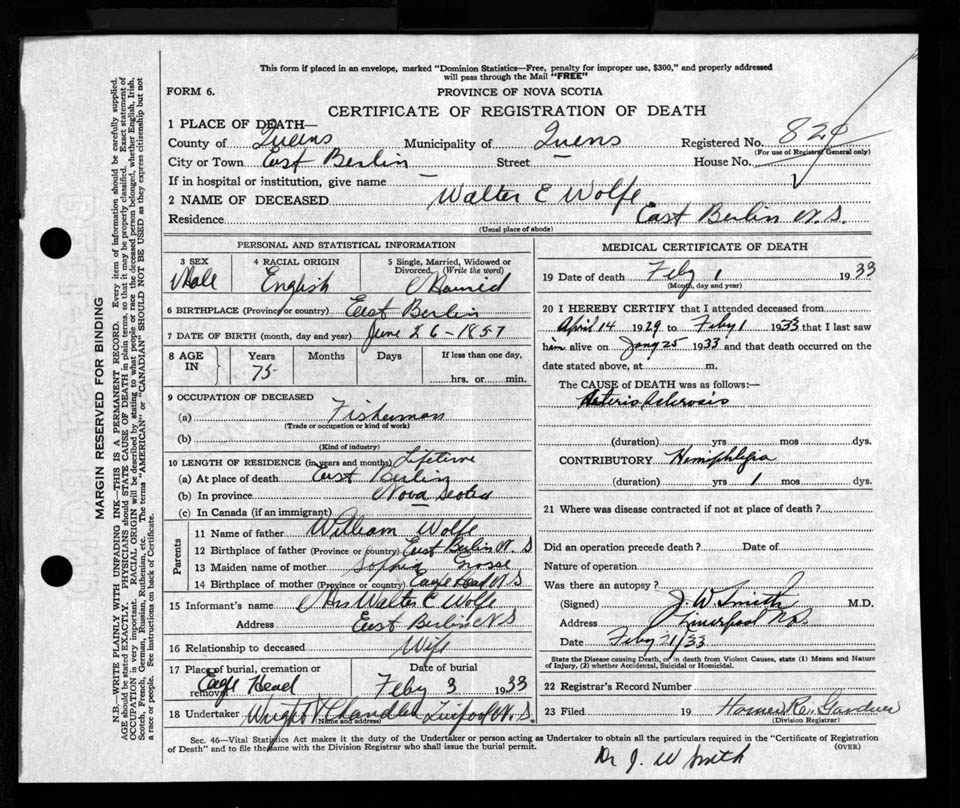 This form if placed in an envelope, marked "Dominion Statistics—Free, penalty for improper use, $300," and properly addressed
will pass through the Mail "FREE"
FORM 6.
PROVINCE OF NOVA SCOTIA
CERTIFICATE OF REGISTRATION OF DEATH
1 PLACE OF DEATH—
County of Queens Municipality of Quens Registered No.
(For use of Registrar General only)
City or Town East Berlin Street — House No.
If in hospital or institution, give name —
2 NAME OF DECEASED Walter E Wolfe
Residence East Berlin N.S.
(Usual place of abode)
PERSONAL AND STATISTICAL INFORMATION
3 SEX Male
4 RACIAL ORIGIN English
5 Single, Married, Widowed or Divorced, (Write the word) Married
6 BIRTHPLACE (Province or country) East Berlin
7 DATE OF BIRTH (month, day and year) June 26-1857
8 AGE IN Years 75 Months Days If less than one day, hrs. or min.
9 OCCUPATION OF DECEASED
(a) Fisherman
(Trade or occupation or kind of work)
(b)
(Kind of industry)
10 LENGTH OF RESIDENCE (in years and months) Lifetime
(a) At place of death East Berlin
(b) In province Nova Scotia
(c) In Canada (if an immigrant)
Parents
11 Name of father William Wolfe
12 Birthplace of father (Province or country) East Berlin N.S
13 Maiden name of mother Sophia
14 Birthplace of mother (Province or country) Eagle Head N S
15 Informant's name Mrs Walter E Wolfe
Address East Berlin N S
16 Relationship to deceased Wife
17 Place of burial, cremation or removal Eagle Head
Date of burial Feby 3 1933
18 Undertaker Wright Chandler Liverpool N.S
(Name and address)
MEDICAL CERTIFICATE OF DEATH
19 Date of death Feby 1 1933
(Month, day and year)
20 I HEREBY CERTIFY that I attended deceased from
April 14 1929 to Feby 1 1933 that I last saw
him alive on Jany 25 1933 and that death occurred on the
date stated above, at m.
The CAUSE of DEATH was as follows:—
Arterio Sclerosis
(duration) yrs mos dys.
CONTRIBUTORY Hemiphlegia
(duration) yrs 1 mos dys.
21 Where was disease contracted if not at place of death?
Did an operation precede death? Date of
Nature of operation
Was there an autopsy?
(Signed) J. W Smith M.D.
Address Liverpool N.S.
Date
State the Disease causing Death, or in death from Violent Causes, state (1) Means and Nature
of Injury, (2) whether Accidental, Suicidal or Homicidal.
22 Registrar's Record Number
23 Filed 19 Homer R. Gardner
(Division Registrar)
Sec. 46—Vital Statistics Act makes it the duty of the Undertaker or person acting as Undertaker to obtain all the particulars required in the "Certificate of Registration
of Death" and to file the same with the Division Registrar who shall issue the burial permit.
(OVER)
Dr J. W Smith
MARGIN RESERVED FOR BINDING
N.B.—WRITE PLAINLY WITH UNFADING INK—THIS IS A PERMANENT RECORD. Every item of information should be carefully supplied.
AGE should be stated EXACTLY. PHYSICIANS should STATE CAUSE OF DEATH in plain terms, so that it may be properly classified. Exact statement of
OCCUPATION is very important. RACIAL ORIGIN will be described by stating to what people or race the deceased person belonged, whether English, Irish,
Scotch, French, German, Russian, Ruthenian, etc. The terms "AMERICAN" or "CANADIAN" SHOULD NOT BE USED as they express citizenship but not
a race or people. See instructions on back of Certificate.